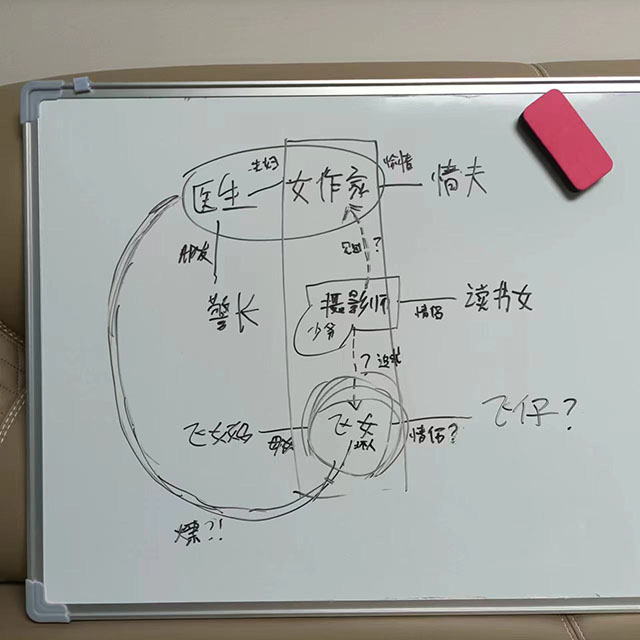 夫妇
偷情
医生
女作家
情夫
朋友
?
警长
摄影师
情侣
读书女
少爷
?
飞女妈
母女
飞女
情侣?
飞仔?
坏人
爆?!